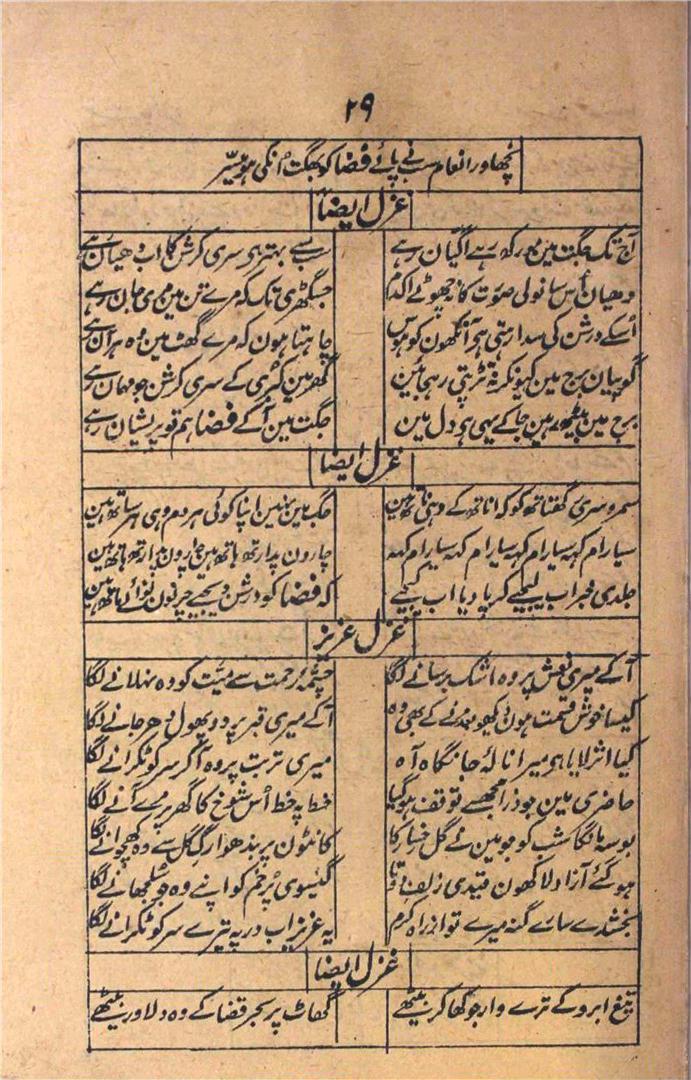 ۲۹
نچھاور انعام سب نے پائے فضا کو بھگت اُنکی ہو میسّر
غزل ایضاً
آج تک جگت مین مورکھ رہے اگیان رہے
رب سے بہتر ہی سری کرشن کا اب دھیان رہے
دھیان اُس سانولی صورت کا نہ چھوٹے اکدم
جسگھڑی تک کہ مرے تن مین مری جان رہے
اُسکے درشن کی سدا رہتی ہی آنکھون کو ہوس
چاہتا ہون کہ مرے گھٹ مین وہ ہر آن رہے
گوپیان برج مین کیونکر نہ تڑپتی رہجائین
گھر مین کبری کے سری کرشن جو مہمان رہے
برج مین بیٹھ رہین جاکے یہی ہی دل مین
جگت مین آکے فضا ہم تو پریشان رہے
غزل ایضاً
سمرو سری گھناتھ کو کہ اناتھ کے وہی ناتھ ہین
جگ مین نہین اپنا کوئی ہر دم وہی ہر ساتھ ہین
سیارام کہہ سیارام کہہ سیارام کہہ سیارام کہہ
چارون پدارتھ ہاتھ ہین چارون پدارتھ ہاتھ ہین
جلدی خبر اب لیجیے کرپا دیا اب کیجیے
کہ فضا کو درشن دیجیے چرنون نوائے ماتھ ہین
غزل عزیز
آکے میری نعش پر وہ اشک برسانے لگا
چشمۂ رحمت سے میّت کو وہ نہلانے لگا
کیسا خوش قسمت ہون دیکھو بعد مرنے کے بھی وہ
آکے میری قبر پر دو پھول دھر جانے لگا
کیا اثر لایا ہو میرا نالۂ جانکاہ آہ
میری تربت پر وہ آکر سر کو ٹکرانے لگا
حاضری مین جو ذرا مجھسے توقف ہوگیا
خط پہ خط اُس شوخ کا گھر پر مرے آنے لگا
بوسہ مانگا شب کو جو مین نے گل رخسار کا
کانٹون پر بندھوا رگ گل سے وہ کھچوانے لگا
ہوگئے آزاد لاکھون قیدی زلف دوتا
گیسوی پُرخم کو اپنے وہ جو سلجھانے لگا
بخشدے سارے گنہ میرے تو از راہ کرم
یہ عزیز اب در پہ تیرے سر کو ٹکرانے لگا
غزل ایضاً
تیغ ابرو کے ترے وار جو کھا کر بیٹھے
گھاٹ پر بحر قضا کے وہ دلاور بیٹھے